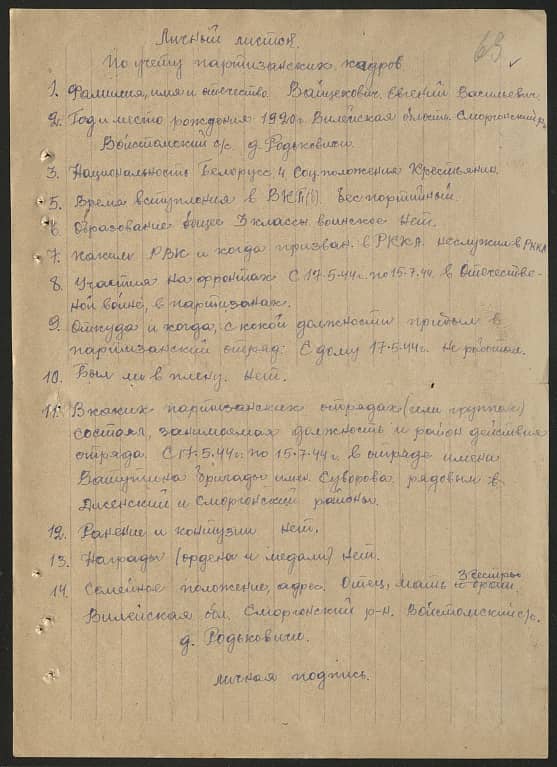 Личный листок
63
По учету партизанских кадров
1. Фамилия, имя и отчество Войцехович Евгений Васильевич
2. Год и место рождения 1920 г. Вилейская область Сморгонский р.
Войстомский с/с. д. Родьковичи.
3. Национальность Белорусс. 4 Соц. положение Крестьянин.
5. Время вступления в ВКП(б). Беспартийный.
6. Образование общее 3 классы. воинское нет.
7. каким РВК и когда призван. в РККА. неслужил в РККА
8. Участия на фронтах с 17-5-44 г. по 15-7-44. в Отечестве-
ной войне, в партизанах.
9. Откуда и когда, с какой должности прибыл в
партизанский отряд: С дому 17-5-44 г. не работал.
10. Был ли в плену. нет.
11. В каких партизанских отрядах (или группах)
состоял, занимаемая должность и район действия
отряда. С 17-5-44 г. по 15-7-44 г. в отряде имени
Ватутина бригады имен. Суворова рядовым в
Дисенский и Сморгонский районы.
12. Ранение и контузии нет.
13. Награды (ордена и медали) нет.
14. Семейное положение, адрес. Отец, мать 3 сестры
брат.
Вилейская обл. Сморгонский р-н. Войстомский с/с.
д. Родьковичи.
личная подпись.